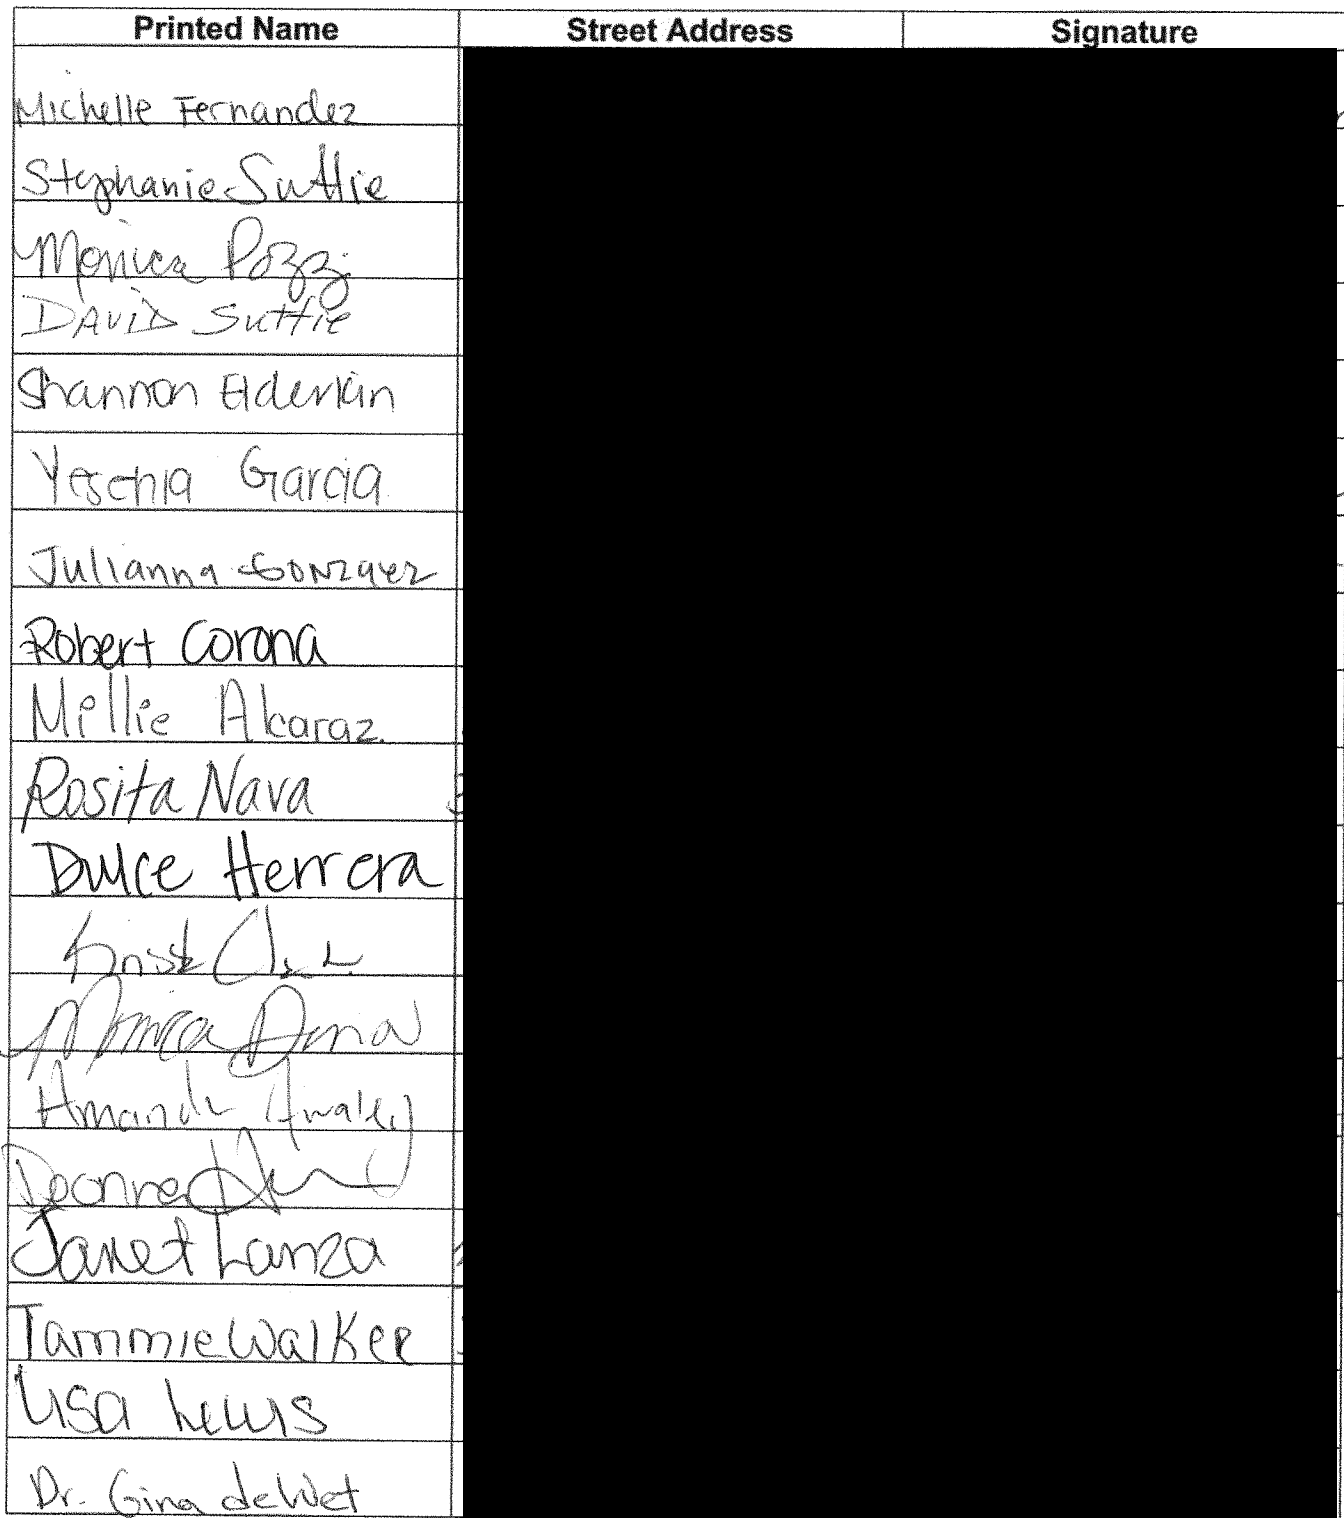 Printed Name Street Address Signature
Michelle Fernandez
Stephanie Suttie
Monica Pozzi
DAVID Suttie
Shannon Elderkin
Yesenia Garcia
Julianna Gonzalez
Robert Corona
Millie Alcaraz
Rosita Nava
Dulce Herrera
Monica
Amanda
Deanna
Janet Lanza
Tammie Walker
Lisa Lewis
Dr. Gina deWet